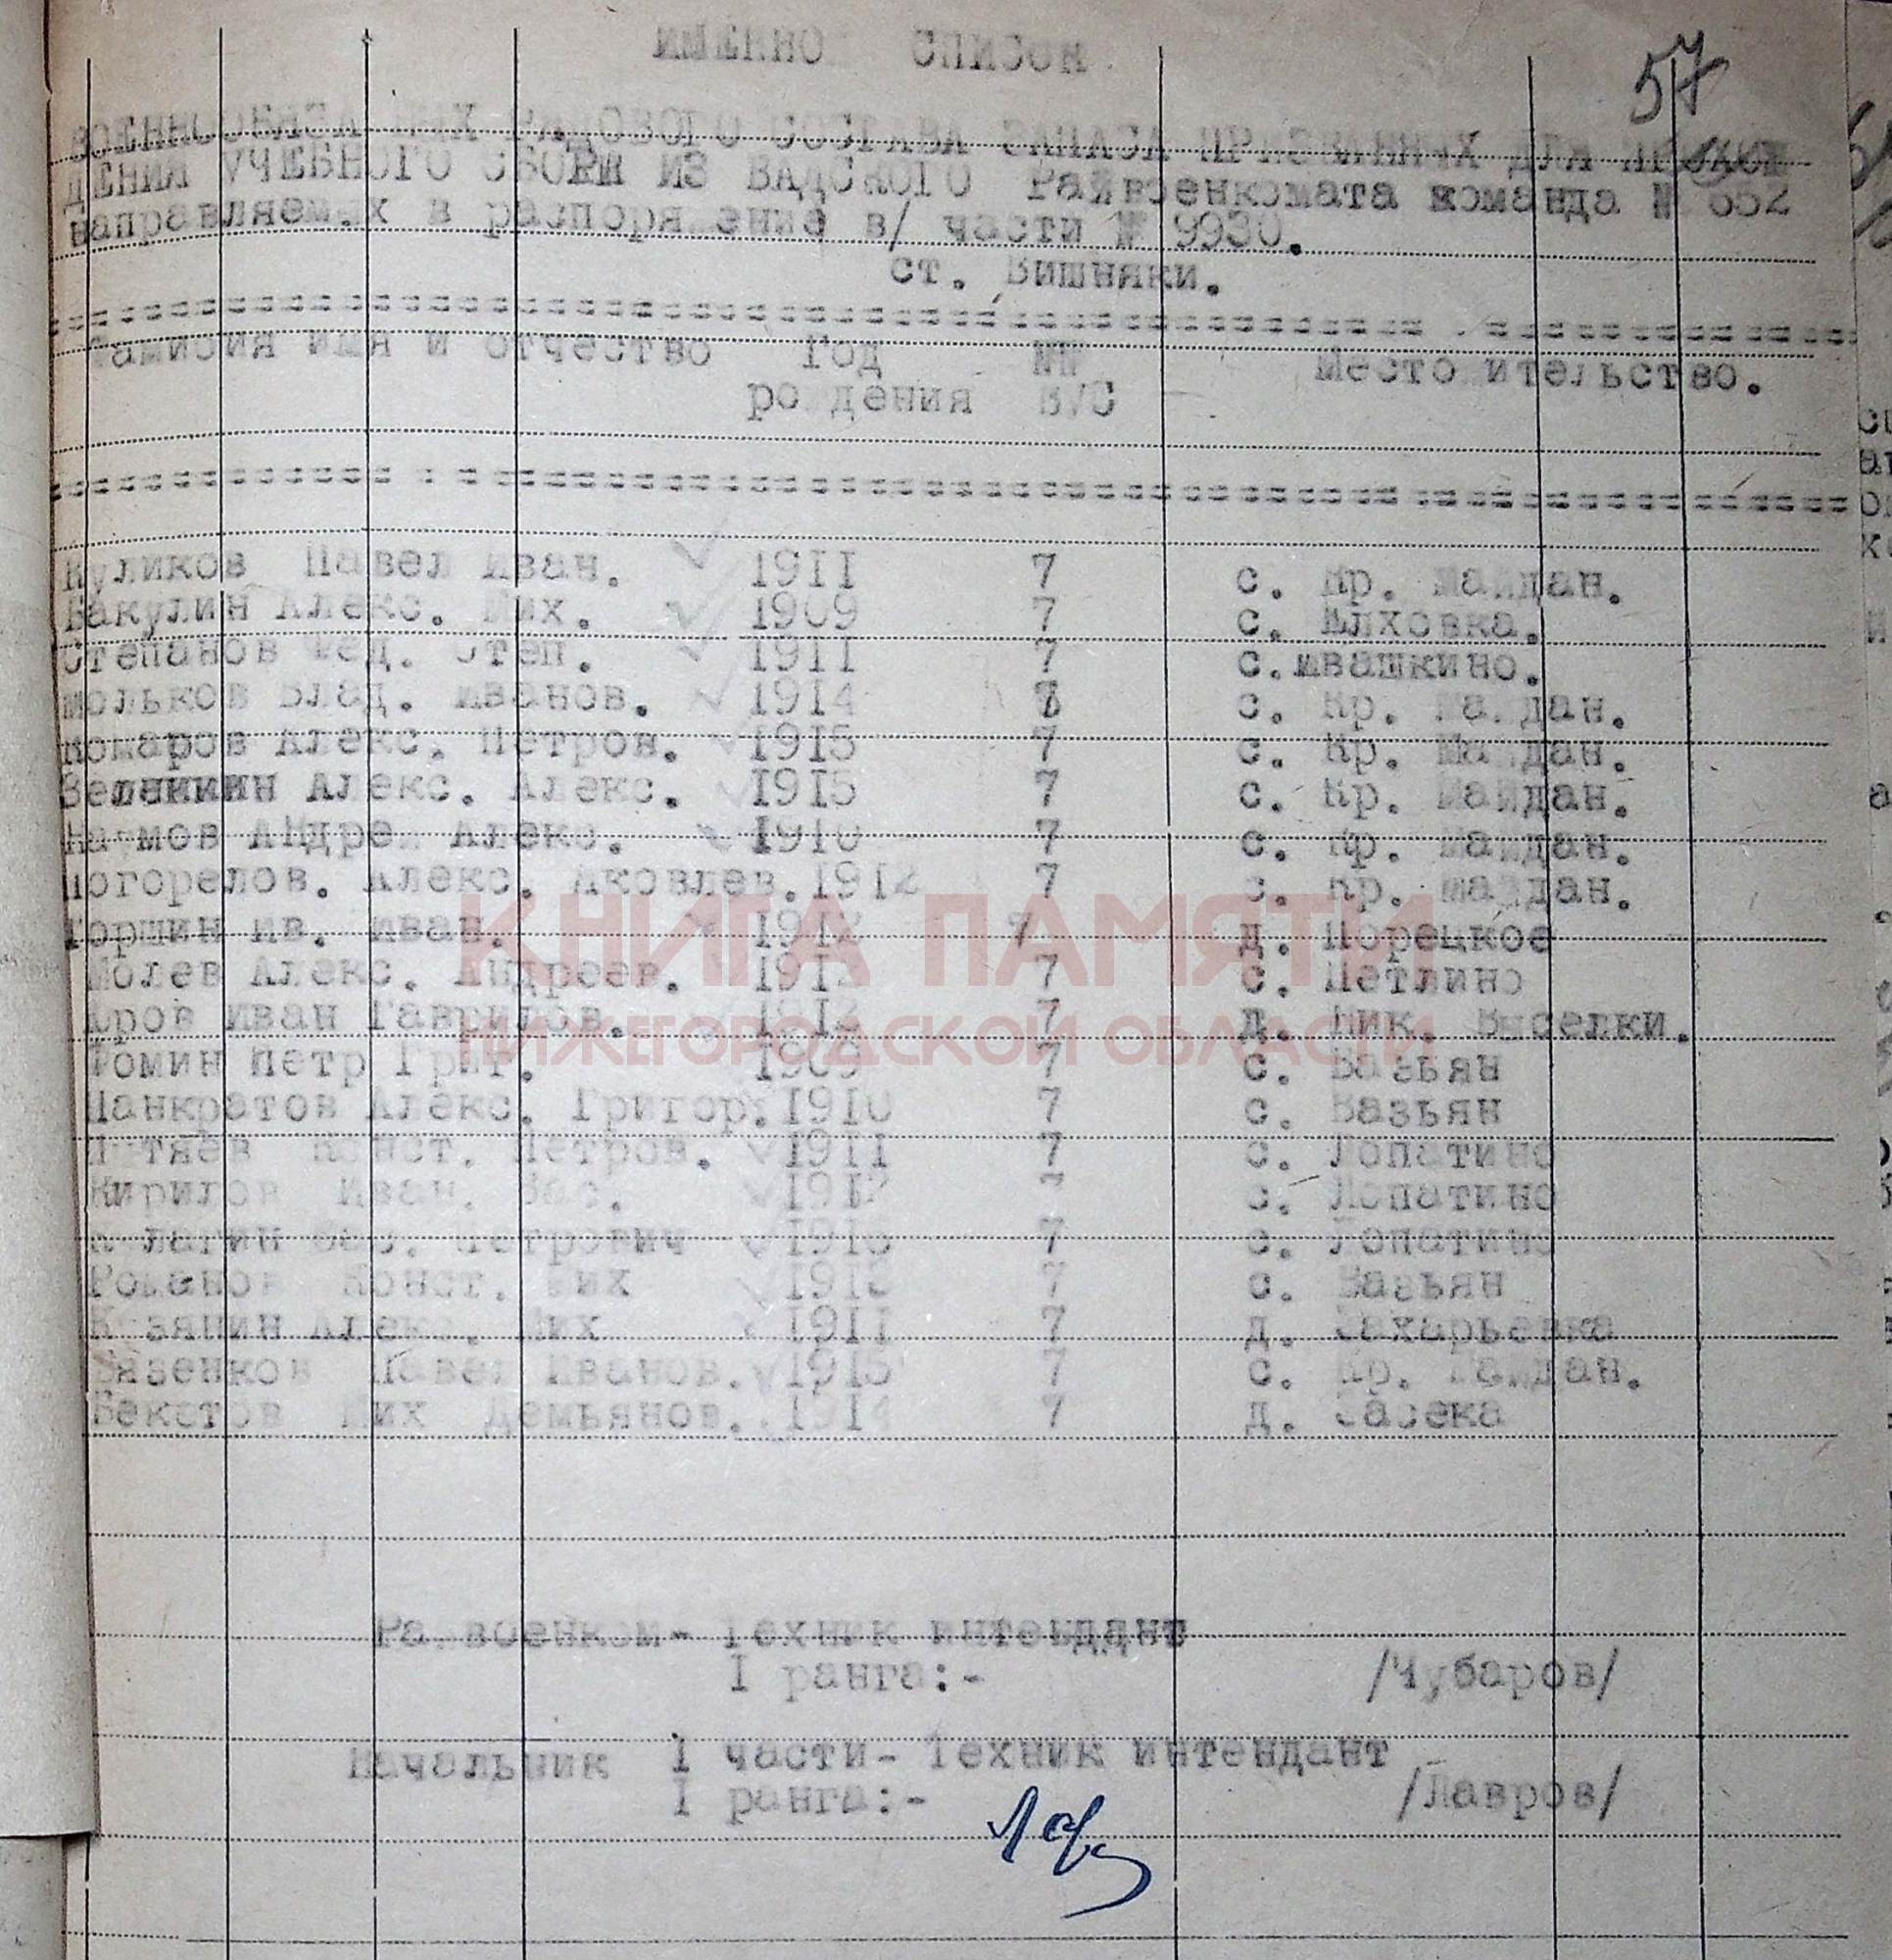 57
ИМЕННО СПИСОК
ВОЕННООБЯЗАННЫХ РЯДОВОГО СОСТАВА ЗАПАСА ПРИЗВАННЫХ ДЛЯ
ДЕНИЯ УЧЕБНОГО СБОРЫ ИЗ ВАДСКОГО Райвоенкомата команда №
направляемых в распоря ение в/ части № 9930.
ст. Вишняки.
Фамилия имя и отчество Год №№ Место ительство.
ро дения ВУС
Куликов Павел Иван. 1911 7 с. Кр. Майдан.
Бакулин Алекс. Мих. 1909 7 с. Елховка.
Степанов Фед. Степ. 1911 7 с.Ивашкино.
Мольков Влад. Иванов. 1914 7 с. Кр. Майдан.
Комаров Алекс. Петров. 1915 7 с. Кр. Майдан.
Алекс. Алекс. 1915 7 с. Кр. Майдан.
Наумов Андрей Алекс. 1910 7 с. Кр. Майдан.
Погорелов. Алекс. Яковлев. 1912 7 с. Кр. Майдан.
Горшин Ив. Иван. 1912 7 д. Порецкое
Молев Алекс. Андреев. 7 с. Петлино
Иван Гаврилов. 1912 7 д. Ник. Выселки.
Фомин Петр Григ. 1909 7 с. Вазьян
Панкратов Алекс. Григор. 1910 7 с. Вазьян
Конст. Петров. 1911 7 с. Лопатино
Кирилов Иван. Вас. 1912 7 с. Лопатино
Вас. Петрович 7 с. Лопатино
Романов Конст. Мих 7 с. Вазьян
Алекс. Мих 1911 7 д. Захарьевка
Вязенков Павел Иванов. 1915 7 с. Кр. Майдан.
Бекетов Мих Демьянов. 1914 7 д. Засека
КНИГА ПАМЯТИ
НИЖЕГОРОДСКОЙ ОБЛАСТИ
Ра. военком- Техник интендант
I ранга:- /Чубаров/
Начальник I части- Техник интендант
I ранга:- /Лавров/